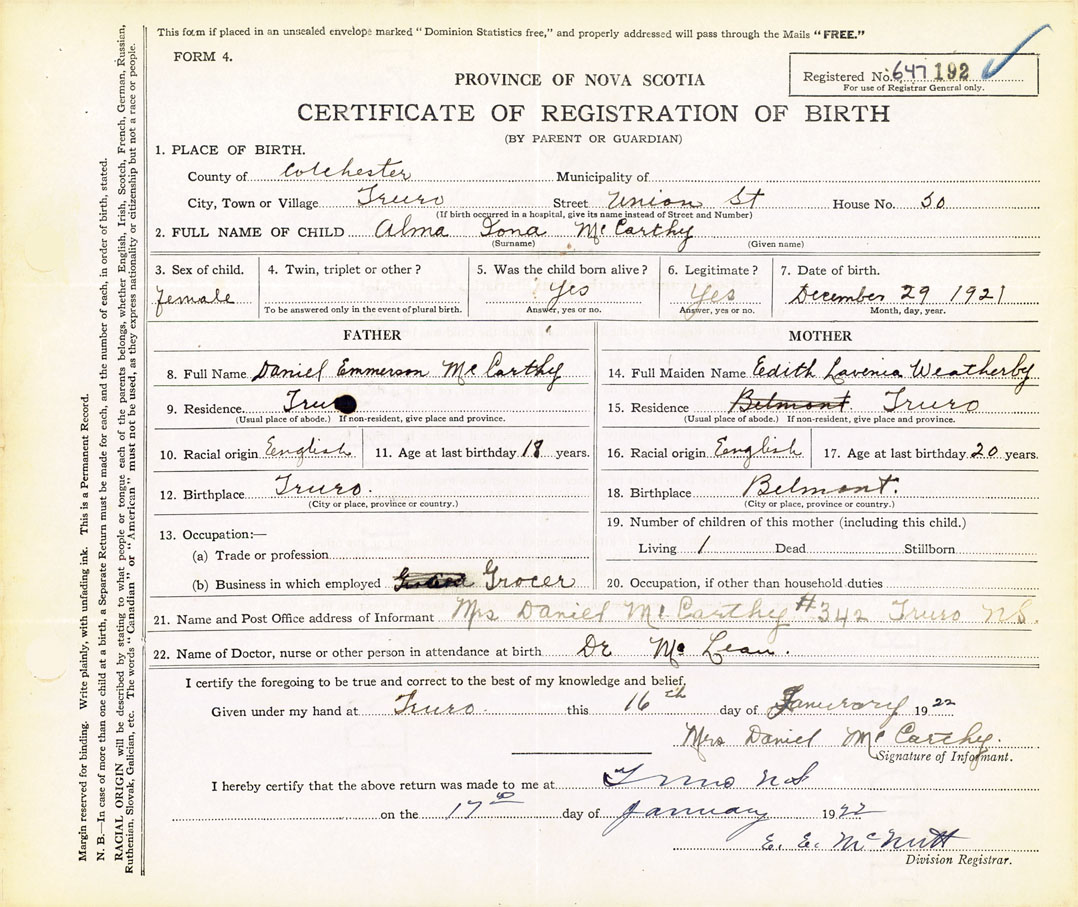 This form if placed in an unsealed envelope marked "Dominion Statistics free," and properly addressed will pass through the Mails "FREE."
FORM 4.
Registered No. 647 192
For use of Registrar General only.
PROVINCE OF NOVA SCOTIA
CERTIFICATE OF REGISTRATION OF BIRTH
(BY PARENT OR GUARDIAN)
1. PLACE OF BIRTH.
County of Colchester Municipality of
City, Town or Village Truro Street Union St House No. 50
(If birth occurred in a hospital, give its name instead of Street and Number)
2. FULL NAME OF CHILD Alma Iona McCarthy
(Surname) (Given name)
3. Sex of child. 4. Twin, triplet or other? 5. Was the child born alive? 6. Legitimate? 7. Date of birth.
female yes yes December 29 1921
To be answered only in the event of plural birth. Answer, yes or no. Answer, yes or no. Month, day, year.
FATHER MOTHER
8. Full Name Daniel Emmerson McCarthy 14. Full Maiden Name Edith Lavenia Weatherby
9. Residence. Truro 15. Residence Belmont Truro
(Usual place of abode.) If non-resident, give place and province. (Usual place of abode.) If non-resident, give place and province.
10. Racial origin English 11. Age at last birthday 18 years. 16. Racial origin English 17. Age at last birthday 20 years.
12. Birthplace Truro. 18. Birthplace Belmont.
(City or place, province or country.) (City or place, province or country.)
13. Occupation:— 19. Number of children of this mother (including this child.)
(a) Trade or profession Living 1 Dead Stillborn
(b) Business in which employed Grocer 20. Occupation, if other than household duties
21. Name and Post Office address of Informant Mrs Daniel McCarthy #342 Truro N.S.
22. Name of Doctor, nurse or other person in attendance at birth Dr McLean.
I certify the foregoing to be true and correct to the best of my knowledge and belief,
Given under my hand at Truro. this 16th day of Janurary 1922
Mrs Daniel McCarthy.
Signature of Informant.
I hereby certify that the above return was made to me at Truro N S
on the 17th day of January 1922
E. E. McNutt
Division Registrar.
Margin reserved for binding. Write plainly, with unfading ink. This is a Permanent Record.
N. B.—In case of more than one child at a birth, a Separate Return must be made for each, and the number of each, in order of birth, stated.
RACIAL ORIGIN will be described by stating to what people or tongue each of the parents belongs, whether English, Irish, Scotch, French, German, Russian,
Ruthenian, Slovak, Galician, etc. The words "Canadian" or "American" must not be used, as they express nationality or citizenship but not a race or people.